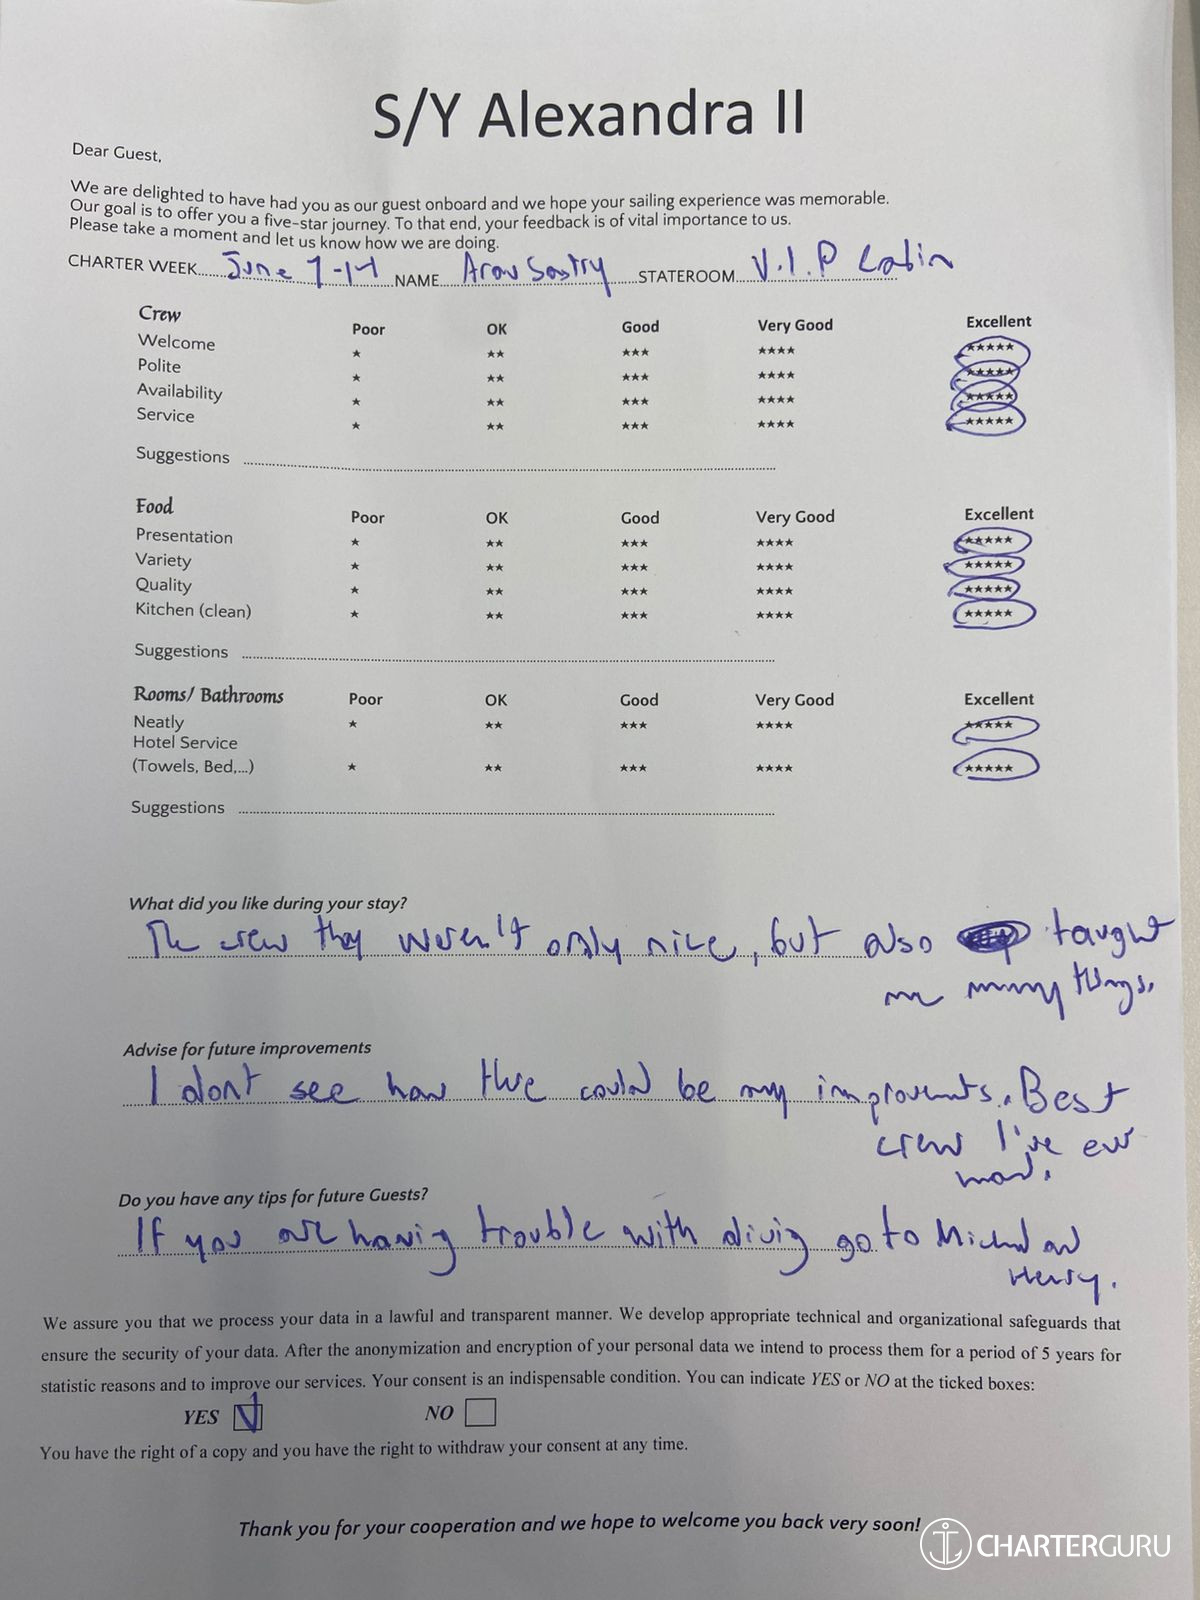 S/Y Alexandra II
Dear Guest,
We are delighted to have had you as our guest onboard and we hope your sailing experience was memorable.
Our goal is to offer you a five-star journey. To that end, your feedback is of vital importance to us.
Please take a moment and let us know how we are doing.
CHARTER WEEK...... June 7-14 ......NAME... Arav Sastry ......STATEROOM... V.I.P Cabin
Crew Poor OK Good Very Good Excellent
Welcome ★ ★★ ★★★ ★★★★ ★★★★★
Polite ★ ★★ ★★★ ★★★★ ★★★★★
Availability ★ ★★ ★★★ ★★★★ ★★★★★
Service ★ ★★ ★★★ ★★★★ ★★★★★
Suggestions
Food Poor OK Good Very Good Excellent
Presentation ★ ★★ ★★★ ★★★★ ★★★★★
Variety ★ ★★ ★★★ ★★★★ ★★★★★
Quality ★ ★★ ★★★ ★★★★ ★★★★★
Kitchen (clean) ★ ★★ ★★★ ★★★★ ★★★★★
Suggestions
Rooms/ Bathrooms Poor OK Good Very Good Excellent
Neatly ★ ★★ ★★★ ★★★★ ★★★★★
Hotel Service
(Towels, Bed,...) ★ ★★ ★★★ ★★★★ ★★★★★
Suggestions
What did you like during your stay?
The crew they weren't only nice, but also taught
me many things.
Advise for future improvements
I dont see how there could be any improvements. Best
crew I've ever
Do you have any tips for future Guests?
If you are having trouble with diving go to Michael and
Henry.
We assure you that we process your data in a lawful and transparent manner. We develop appropriate technical and organizational safeguards that
ensure the security of your data. After the anonymization and encryption of your personal data we intend to process them for a period of 5 years for
statistic reasons and to improve our services. Your consent is an indispensable condition. You can indicate YES or NO at the ticked boxes:
YES NO
You have the right of a copy and you have the right to withdraw your consent at any time.
Thank you for your cooperation and we hope to welcome you back very soon!
CHARTERGURU